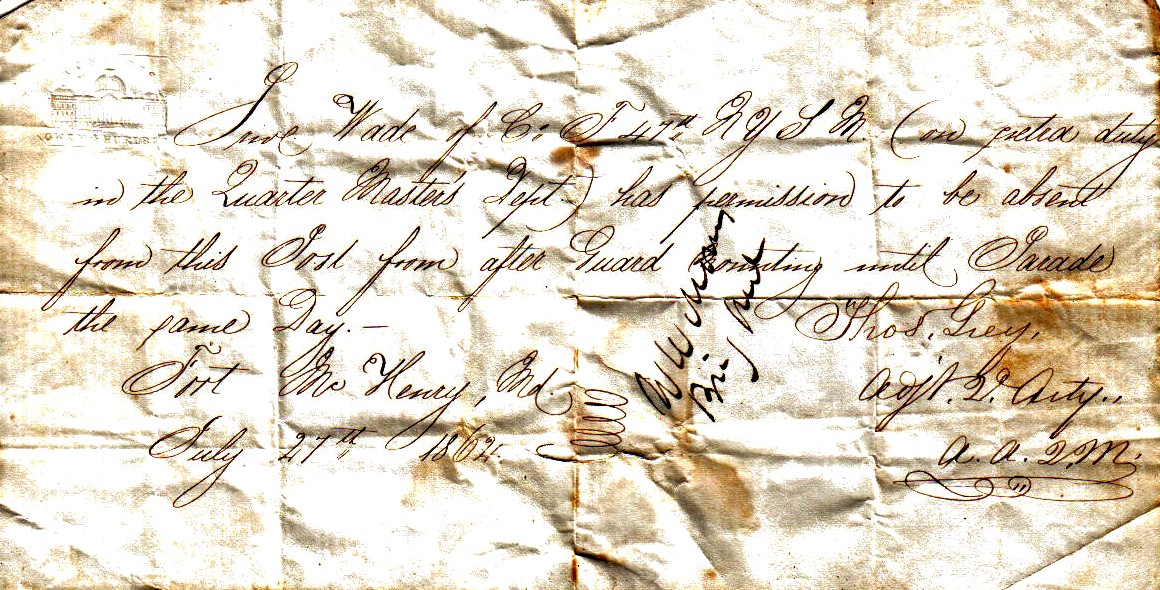 Wade of Co. F 47th N Y S M (on extra duty
in the Quarter Masters Dept.) has permission to be absent
from this Post from after Guard Mounting until Parade
the same Day. —
Thos. Grey,
Fort Mc Henry, Md.
Adjt. 2d. Arty.,
July 27th 1862
A. A. Q. M.